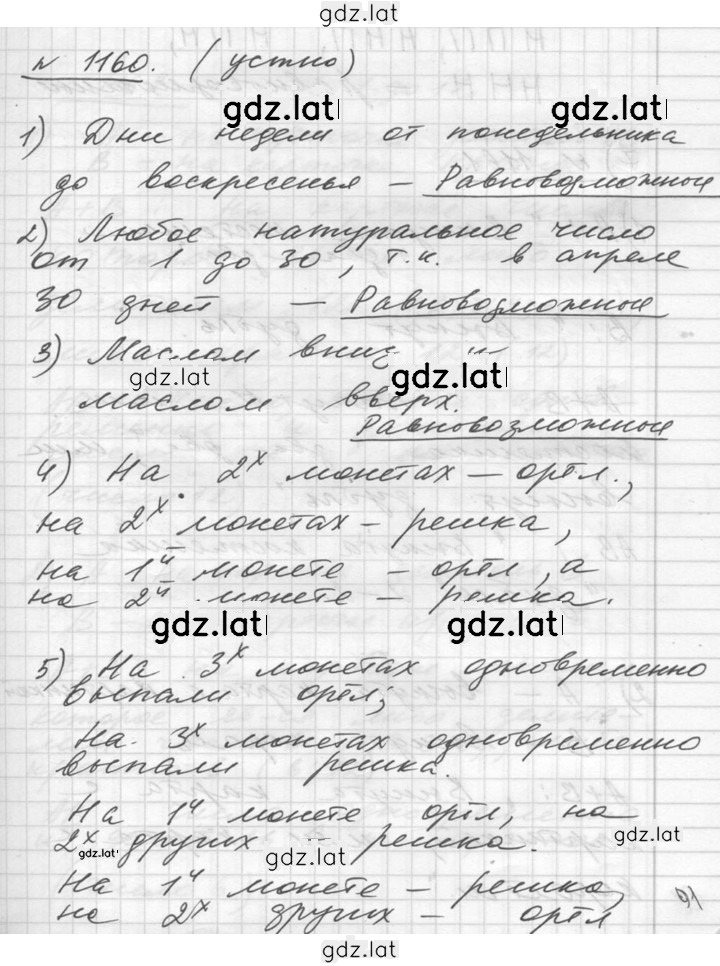 gdz.lat
№ 1160. (устно)
gdz.lat
1) Дни недели от понедельника
до воскресенья – Равновозможные
2) Любое натуральное число
от 1 до 30, т.к. в апреле
30 дней – Равновозможные
3) Маслом вниз
gdz.lat gdz.lat
маслом вверх.
Равновозможные
4) На 2х монетах – орёл.,
на 2х монетах – решка,
на 1й монете – орёл, а
на 2й монете – решка.
gdz.lat gdz.lat
5) На 3х монетах одновременно
выпали орёл;
На 3х монетах одновременно
выпали решка.
На 1й монете орёл, на
2х других – решка.
gdz.lat gdz.lat gdz.lat
На 1й монете – решка,
на 2х других – орёл
gdz.lat